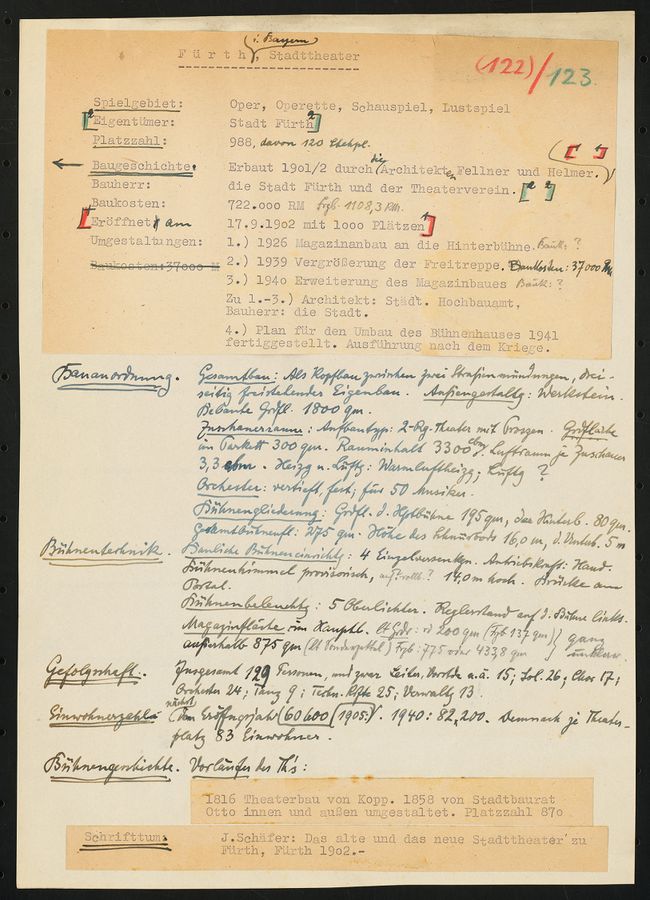 (i. Bayern)
Fürth, Stadttheater
(122)/123
Spielgebiet: Oper, Operette, Schauspiel, Lustspiel
Eigentümer: Stadt Fürth
Platzzahl: 988, davon 120 Stehpl.
Baugeschichte: Erbaut 19o1/2 durch die Architekten Fellner und Helmer.
Bauherr: die Stadt Fürth und der Theaterverein.
Baukosten: 722.ooo RM Frgb. 1108,3 RM.
Eröffnet am 17.9.19o2 mit 1ooo Plätzen
Umgestaltungen: 1.) 1926 Magazinanbau an die Hinterbühne. Bauk: ?
Baukosten:37ooo M 2.) 1939 Vergrößerung der Freitreppe. Baukosten: 37000 RM
3.) 194o Erweiterung des Magazinbaues Bauk: ?
Zu 1.-3.) Architekt: Städt. Hochbauamt,
Bauherr: die Stadt.
4.) Plan für den Umbau des Bühnenhauses 1941
fertiggestellt. Ausführung nach dem Kriege.
Bauanordnung. Gesamtbau: Als Kopfbau zwischen zwei Straßenmündungen, drei-
seitig freistehender Eigenbau. Außengestaltg: Werkstein.
Bebaute Grdfl. 1800 qm.
Zuschauerraum: Aufbautyp: 2-Rg.-Theater mit Logen. Grdfläche
im Parkett 300 qm. Rauminhalt 3300 cbm. Luftraum je Zuschauer
3,3 cbm. Heizg u. Lüftg: Warmluftheizg, Lüftg ?
Orchester: vertieft, fest, für 50 Musiker.
Bühnengliederung: Grdfl. d. Hptbühne 195 qm, der Hinterb. 80 qm.
Gesamtbühnenfl: 275 qm. Höhe des Schnürbods 16,0 m, d. Unterb. 5 m
Bühnentechnik. Bauliche Bühneneinrichtg: 4 Einzelversenkgn. Antriebskraft: Hand.
Bühnenhimmel provisorisch, aufrollb.? 14,0 m hoch. Brücke am
Portal.
Bühnenbeleuchtg: 5 Oberlichter. Reglerstand auf d. Bühne links.
Magazinfläche: im Haupthb. lt Grdr: 200 qm (Frgb 137 qm) ganz
außerhalb 875 qm (lt Sonderzettel) Frgb: 775 oder 433,8 qm unklar
Gefolgschaft. Insgesamt 129 Personen, und zwar: Leiter, Vorstde u. ä. 15; Sol. 26; Chor 17;
Orchester 24; Tanz 9; Techn. Kräfte 25; Verwaltg 13.
Einwohnerzahl: Im Eröffngsjahr 60600 (1905:). 1940: 82,200. Demnach je Theater-
platz 83 Einwohner.
Bühnengeschichte. Vorläufer des Th's:
1816 Theaterbau von Kopp. 1858 von Stadtbaurat
Otto innen und außen umgestaltet. Platzzahl 87o
Schrifttum: J.Schäfer: Das alte und das neue Stadttheater zu
Fürth, Fürth 19o2.-